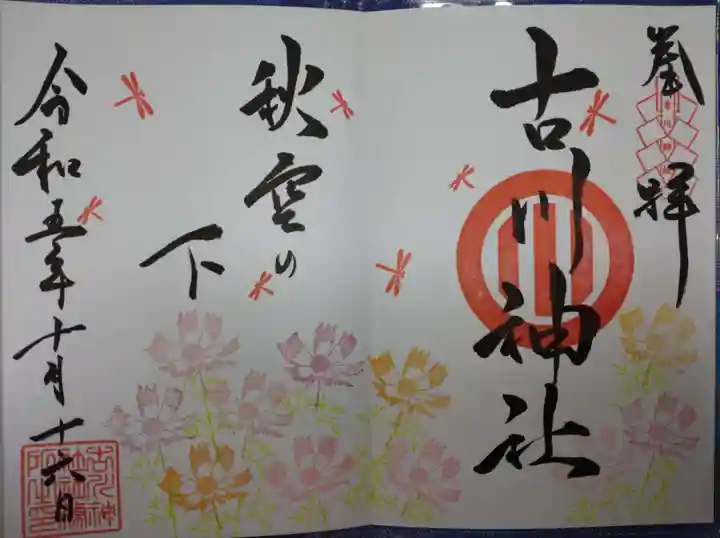 奉拝
古川神社
秋空の
下
令和五年十月十六日